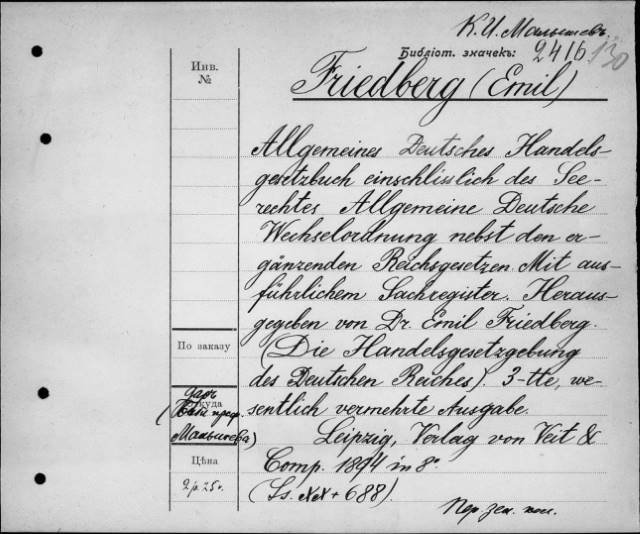 К. И. Малышевъ.
Библіот. значекъ: 2416 130
Инв.
№
Friedberg (Emil)
Allgemeines Deutsches Handels-
gesetzbuch einschlisslich des See-
rechtes Allgemeine Deutsche
Wechselordnung nebst den er-
gänzenden Reichsgesetzen. Mit aus-
führlichem Sachregister. Heraus-
gegeben von Dr. Emil Friedberg.
(Die Handelsgesetzgebung
des Deutschen Reiches). 3-tte, we-
sentlich vermehrte Ausgabe.
Leipzig, Verlag von Veit &
Comp. 1894 in 8°
(Ss. XX + 688).
Пер. зел. кол.
По заказу
даръ
Откуда
проф.
Малышева)
Цѣна
2 р. 25 к.